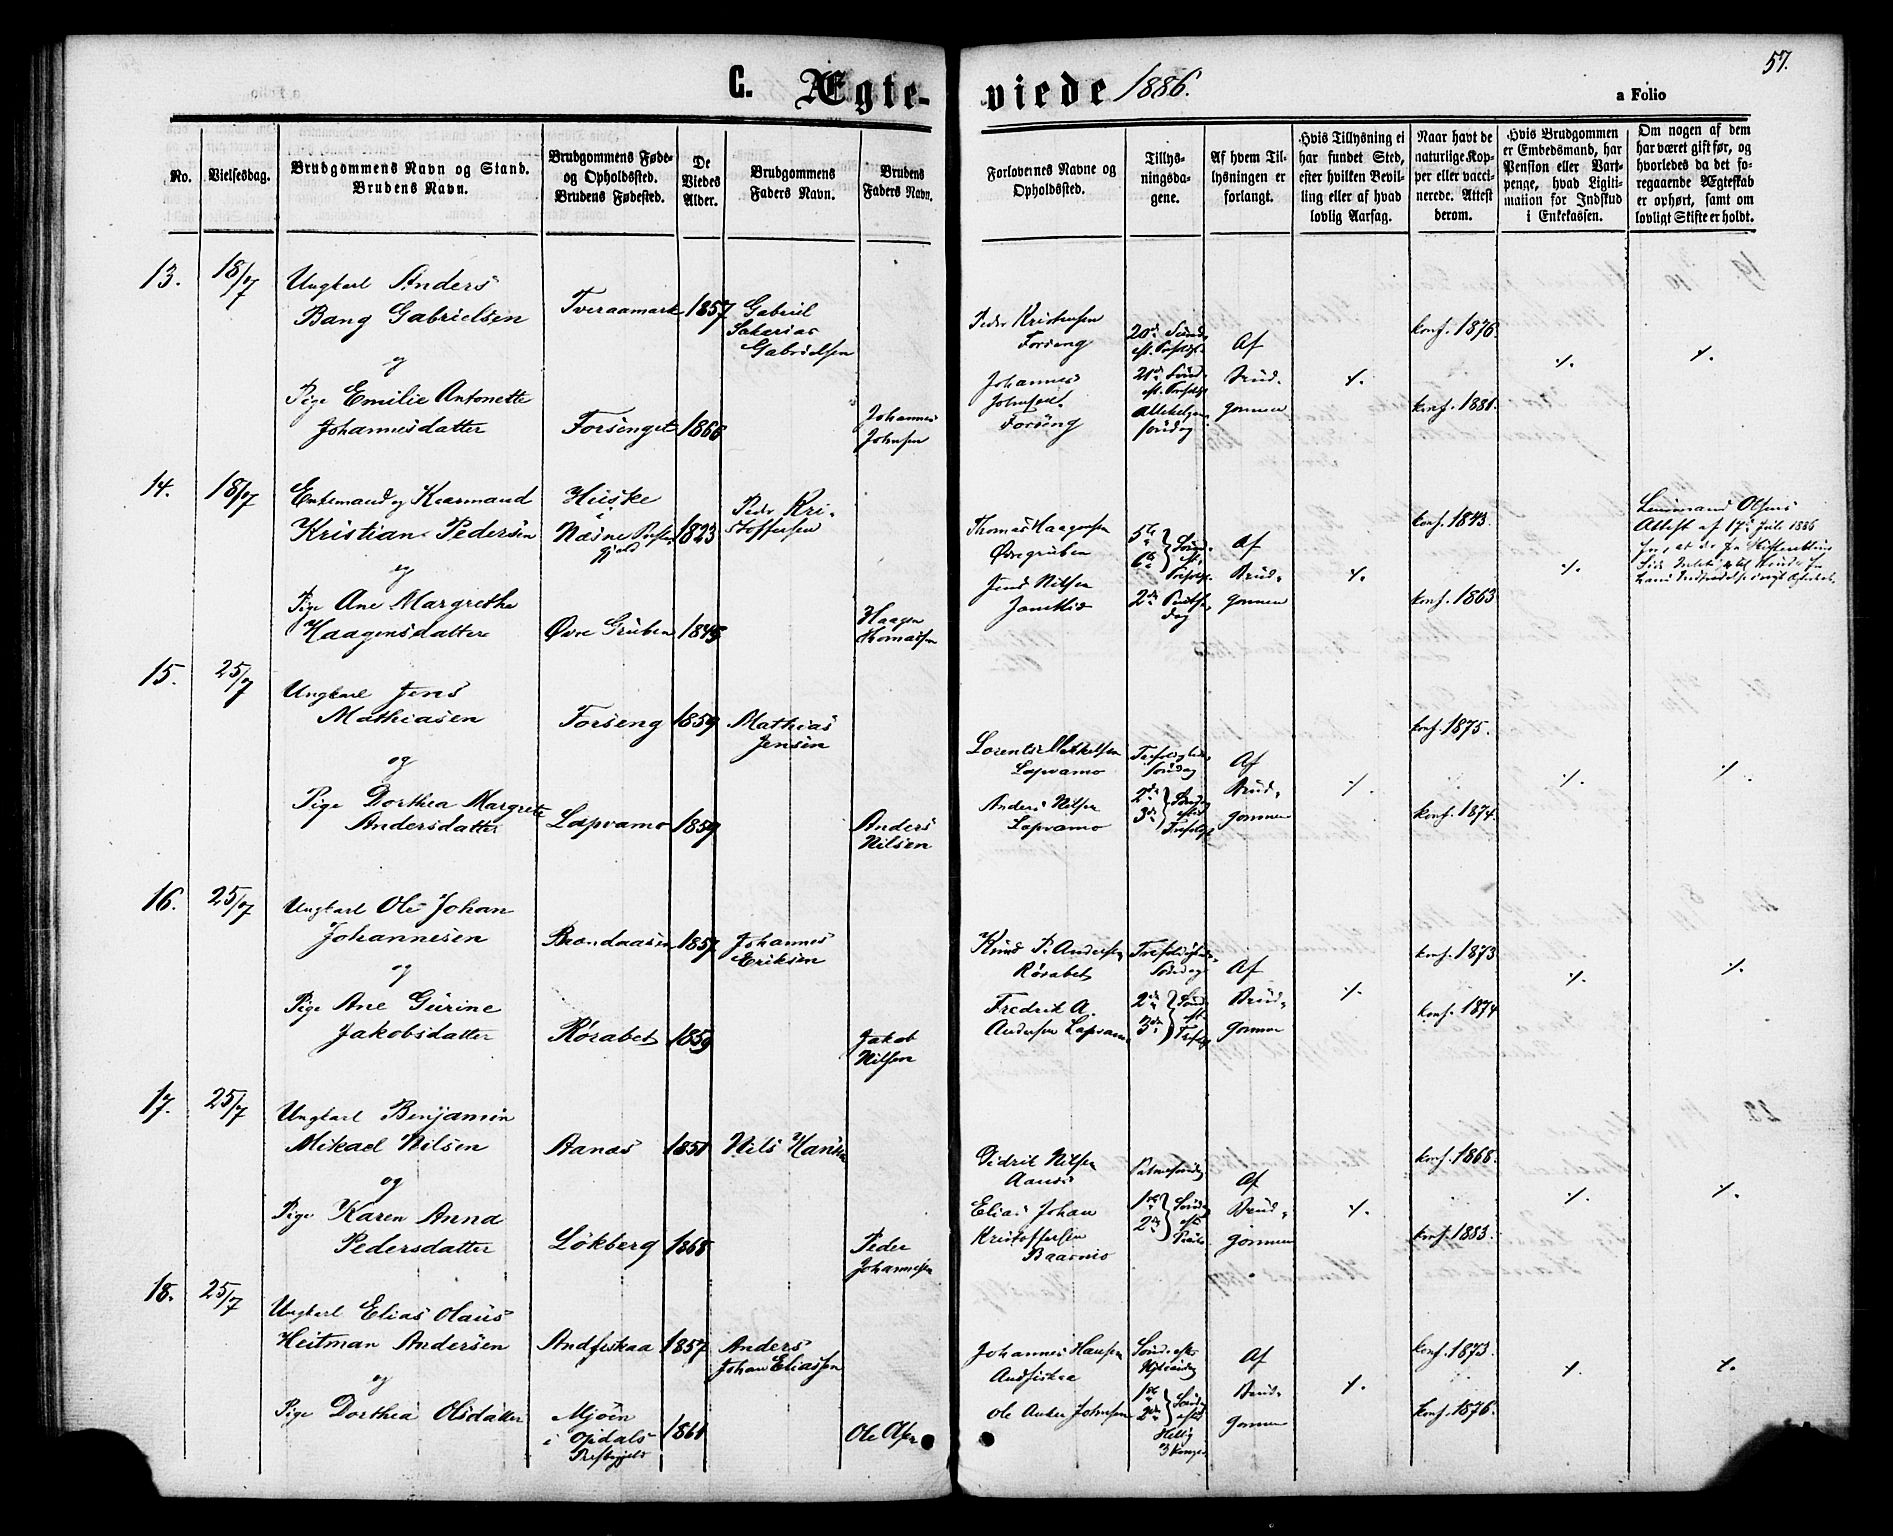 57.
C. Ægte-
viede 1886.
a Folio
No.
Vielsesdag.
Brudgommens Navn og Stand.
Brudens Navn.
Brudgommens Føde-
og Opholdssted.
Brudens Fødested.
De
Viedes
Alder.
Brudgommens
Faders Navn.
Brudens
Faders Navn.
Forlovernes Navne og
Opholdssted.
Tillys-
ningsda-
gene.
Af hvem Til-
lysningen er
forlangt.
Hvis Tillysning ei
har fundet Sted,
efter hvilken Bevil-
ling eller af hvad
lovlig Aarsag.
Naar havt de
naturlige Kop-
per eller vacci-
nerede. Attest
derom.
Hvis Brudgommen
er Embedsmand, har
Pension eller Vart-
penge, hvad Ligiti-
mation for Indskud
i Enkekassen.
Om nogen af dem
har været gift før, og
hvorledes da det fo-
regaaende Ægteskab
er ophørt, samt om
lovligt Skifte er holdt.
13.
18/7
Ungkarl Anders
Bang Gabrielsen
og
Pige Emilie Antonette
Johannesdatter
Tveraamark
Forsenget
1857
1866
Gabriel
Sakarias
Gabrielsen
Johannes
Johnsen
Peder Kristensen
Forseng
Johannes
Johnsen
Forseng
20de Sønd.
eft. Trefoldgh.
21de Sønd.
eft. Trefoldgh.
Allehelgen
søndag
Af
Brud-
gommen
·/.
konf. 1876.
konf. 1881.
·/.
·/.
14.
18/7
Enkemand og Kaarmand
Kristian Pedersen
og
Pige Ane Margrethe
Haagensdatter
Huske
i
Næsne Præste
gjeld
Øvre Gruben
1823
1848
Peder Kri-
stoffersen
Haagen
Thomassen
Thomas Haagensen
Øvregruben
Jens Nilsen
Jamtlis
5te
6te } Sønd.
eft.
Trefoldgh.
2den Pintse
dag
Af
Brud-
gommen
·/.
konf. 1843.
konf. 1863
·/.
Lensmand Olsens
Attest af 17de Juli 1886
15.
25/7
Ungkarl Jens
Mathiasen
og
Pige Dorthea Margrete
Andersdatter
Forseng
Lapvamo
1859
1859
Mathias
Jensen
Anders
Nilsen
Lorents Mikkelsen
Lapvamo
Anders Nilsen
Lapvamo
Trefoldigheds
søndag
2den
3die } Søndag
efter
Trefoldgh.
Af
Brud-
gommen
·/.
konf. 1875.
konf. 1874.
·/.
·/.
16.
25/7
Ungkarl Ole Johan
Johannesen
og
Pige Ane Gurine
Jakobsdatter
Brændaasen
Rørabet
1857
1859
Johannes
Eriksen
Jakob
Nilsen
Knud P. Andersen
Rørabet
Fredrik A.
Andersen Lapvamo
Trefoldigheds-
Søndag
2den
3die } Sønd.
eft.
Trefoldgh.
Af
Brud-
gommen
·/.
konf. 1873
konf. 1874
·/.
·/.
17.
25/7
Ungkarl Benjamin
Mikael Nilsen
og
Pige Karen Anna
Pedersdatter
Aanæs
Løkberg
1851
1868
Nils Hansen
Peder
Johannesen
Didrik Nilsen
Aanæs
Elias Johan
Kristoffersen
Baarnes
Palmesøndag
1ste
2den } Søndag
efter
Paaske
Af
Brud-
gommen
·/.
konf. 1868.
konf. 1883.
·/.
·/.
18.
25/7
Ungkarl Elias Olaus
Heitman Andersen
og
Pige Dorthea Olsdatter
Andfiskaa
Mjøen
i Opdals
Præstegjeld
1857
1861
Anders
Johan Eliassen
Ole
Johannes Hansen
Andfiskaa
Ole Andr. Johnsen
Sønd. efter
Nytaarsdag
1ste
2den } Søndag
efter
Hellig
3 Konger
Af
Brud-
gommen
·/.
konf. 1873.
konf. 1876.
·/.
·/.